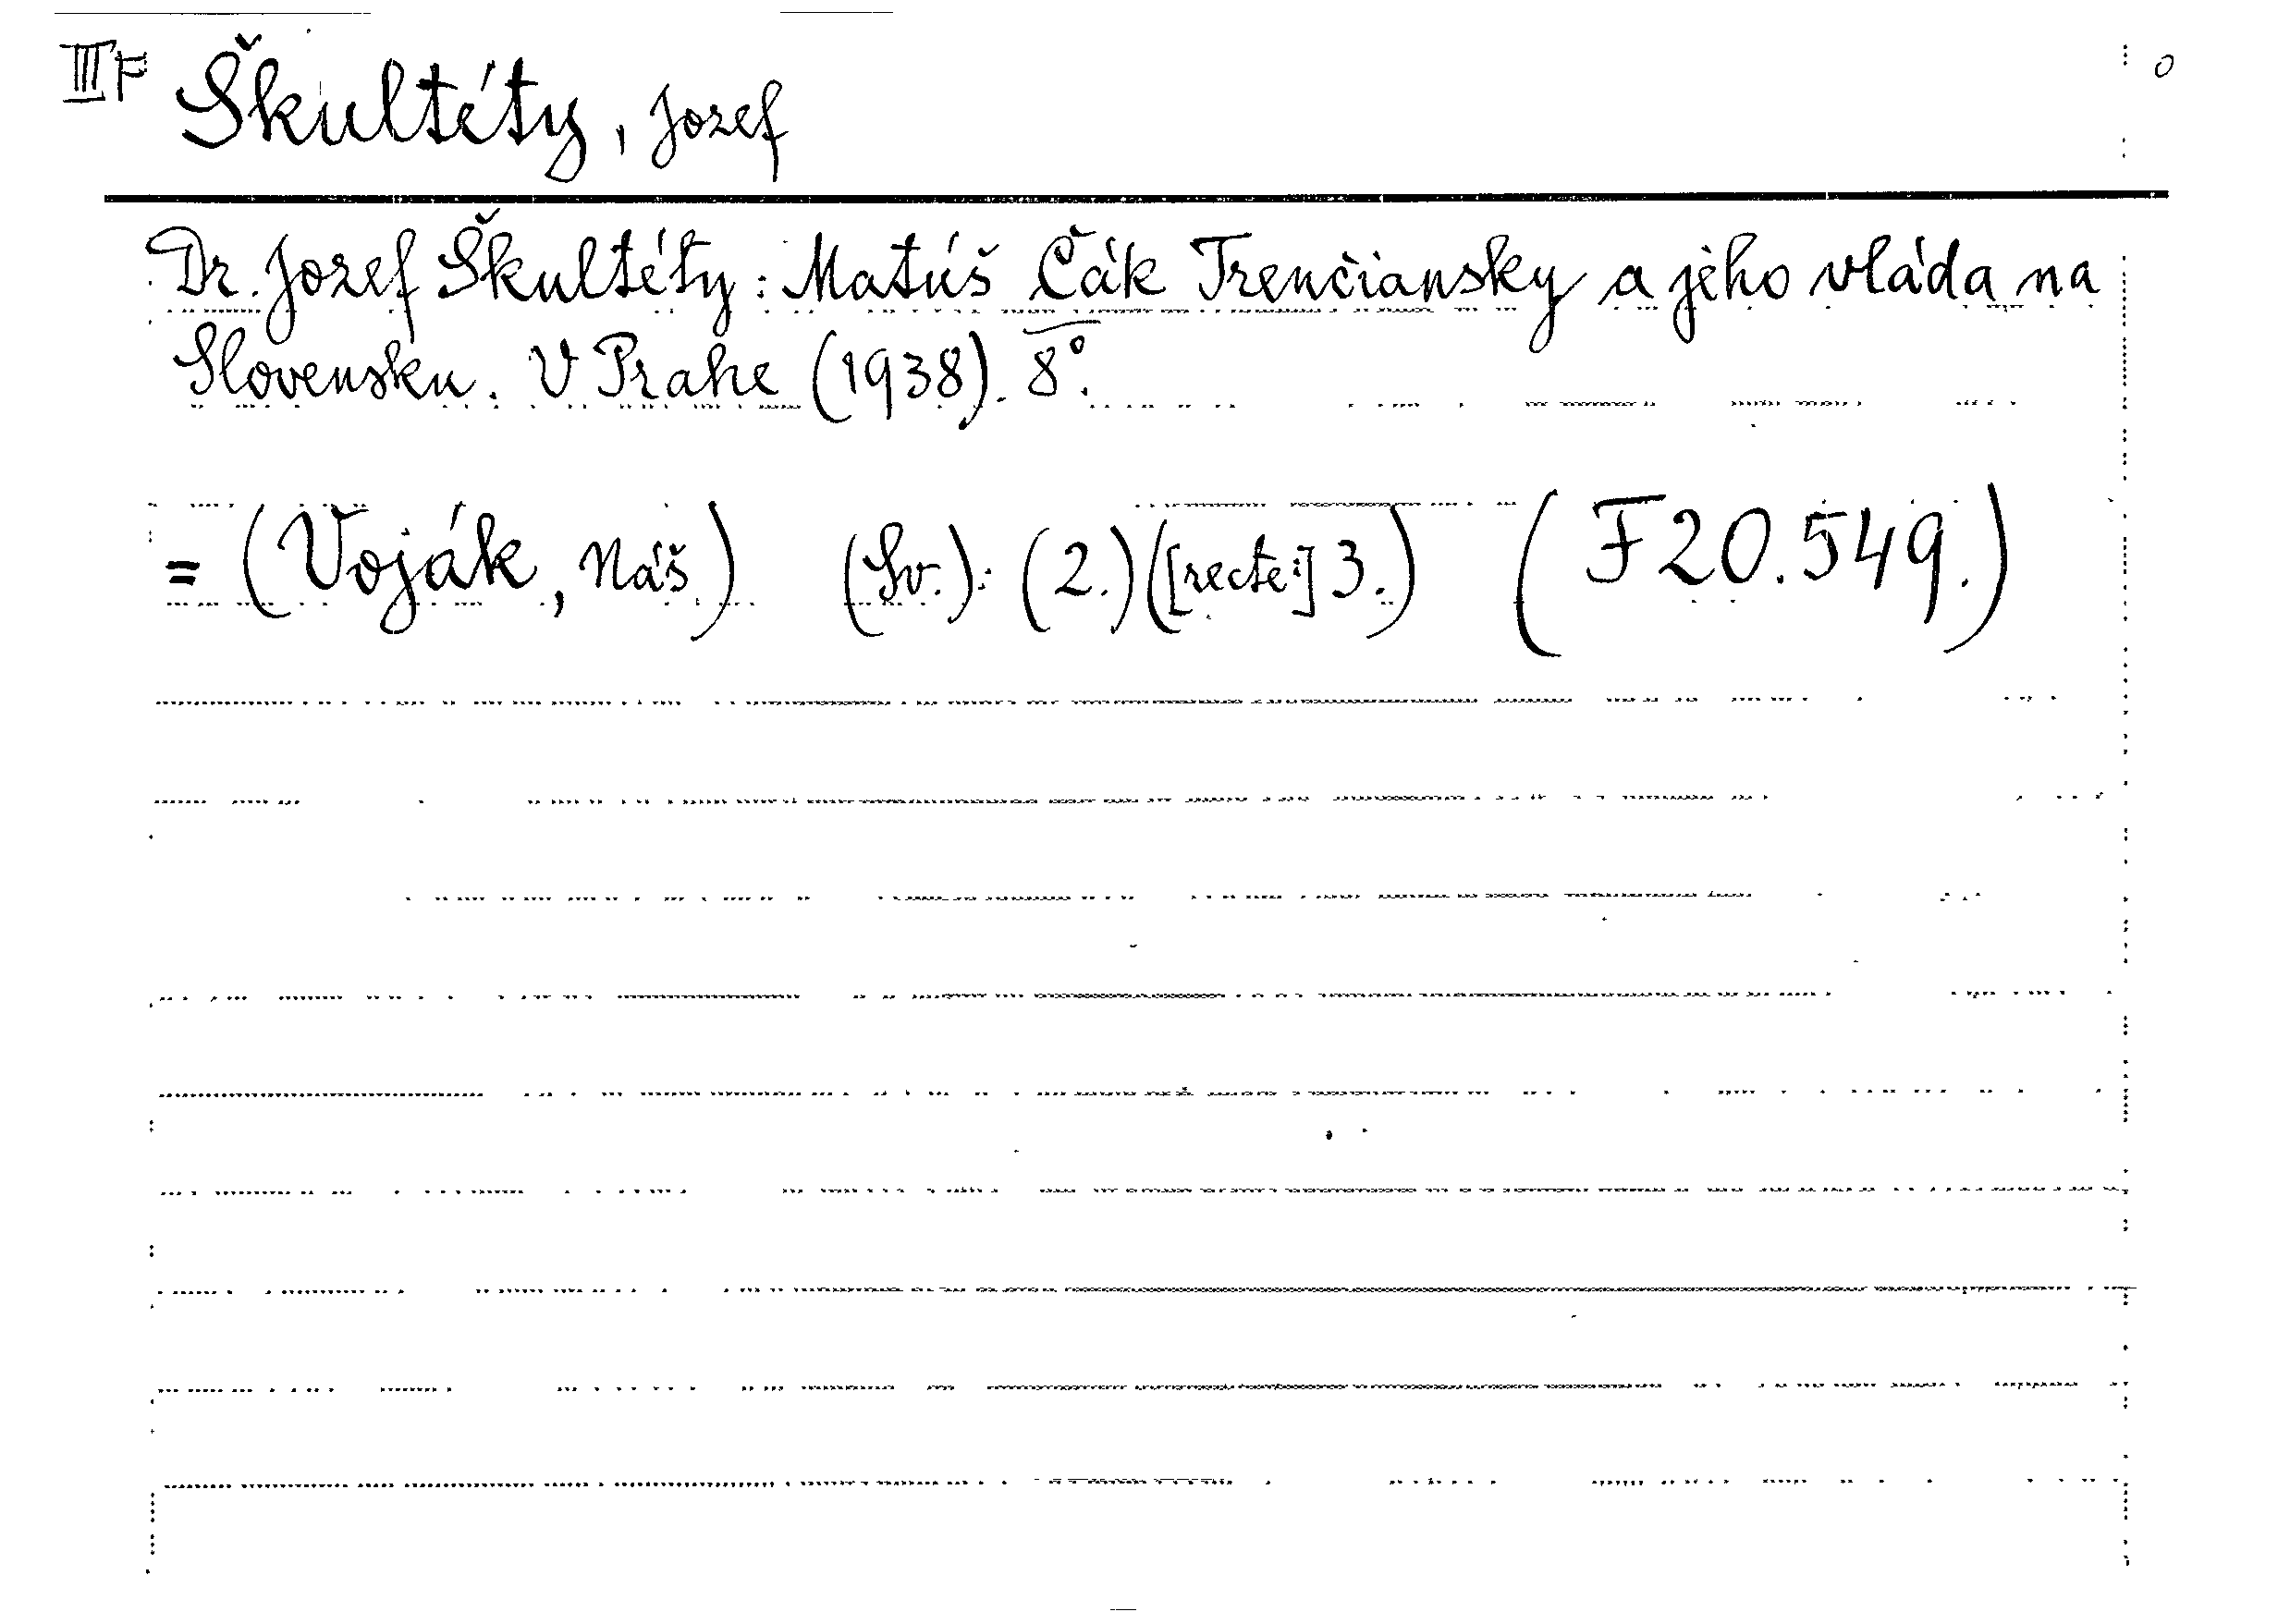 III F Škultéty, Jozef 0
Dr. Jozef Škultéty: Matúš Čák Trenčiansky a jeho vláda na
Slovensku. V Prahe (1938). 8°.
= (Voják, Náš) (Sv.): (2.) ([recte:] 3.) (F 20.549.)